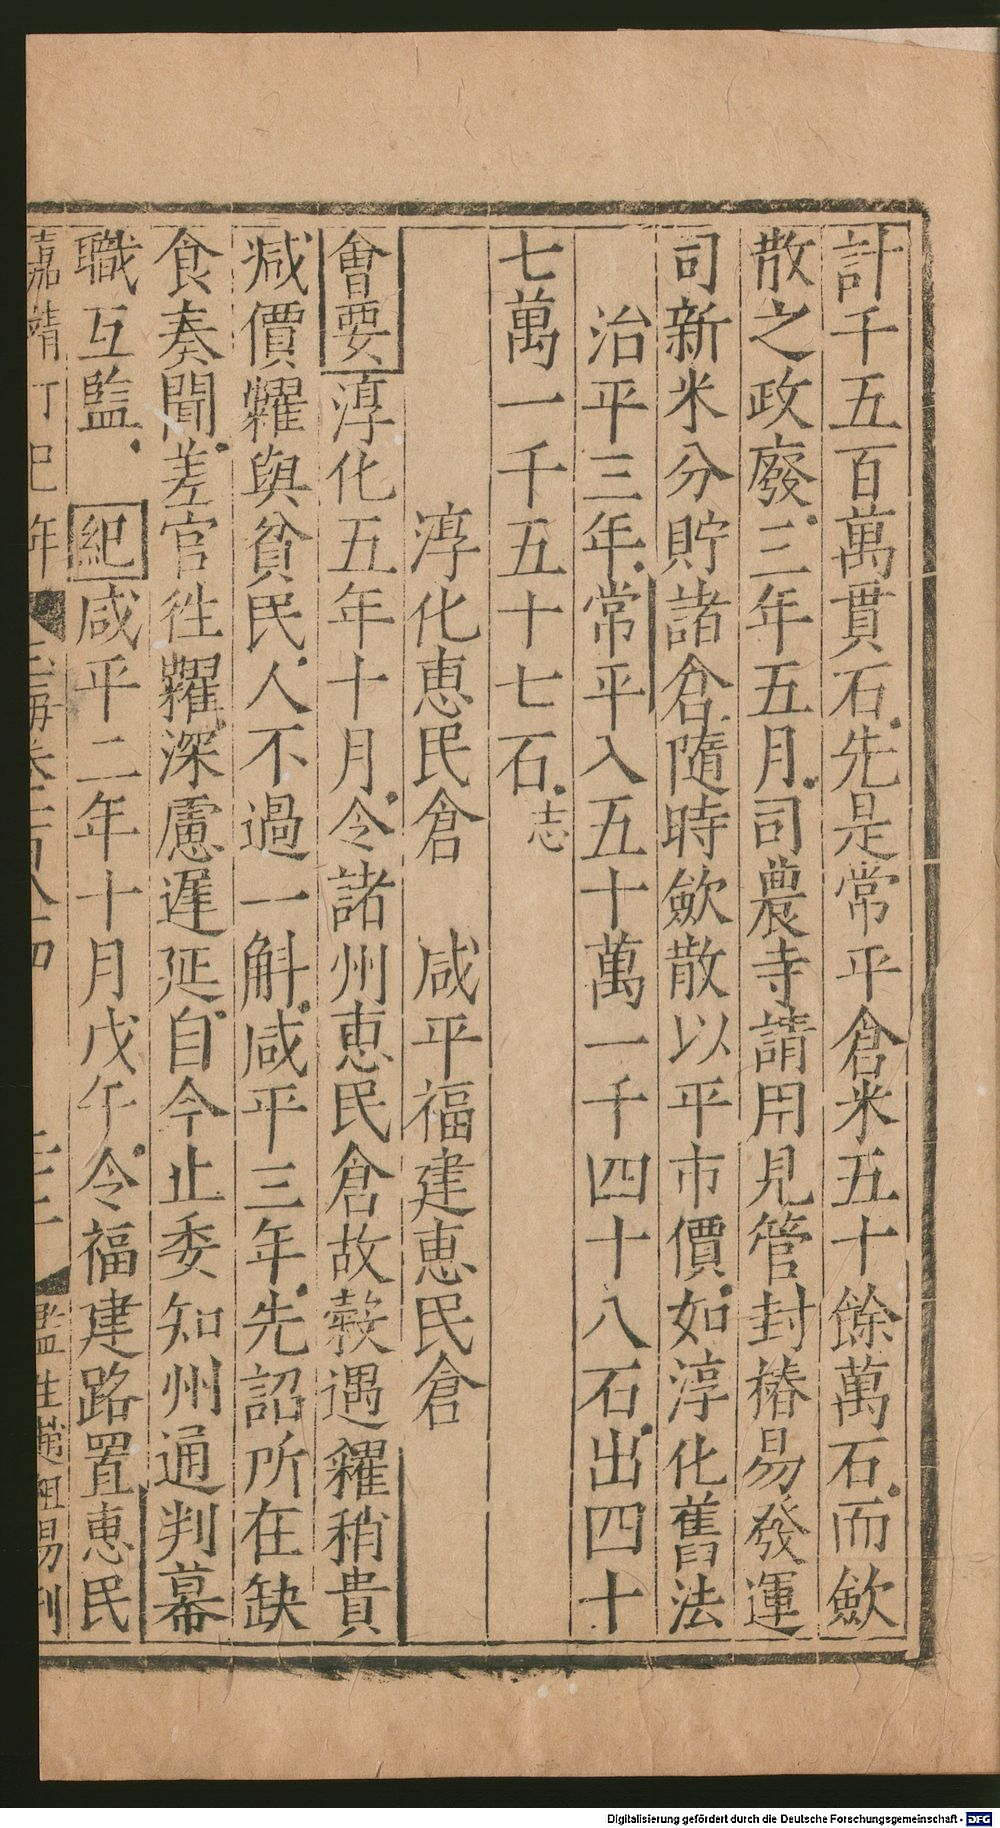 計千五百萬貫石先是常平倉米五十餘萬石而歛
散之政廢三年五月司農寺請用見管封樁易發運
司新米分貯諸倉隨時歛散以平市價如淳化舊法
治平三年常平入五十萬一千四十八石出四十
七萬一千五十七石志
淳化惠民倉 咸平福建惠民倉
會要淳化五年十月令諸州惠民倉故糓遇糴稍貴
減價糶與貧民人不過一斛咸平三年先詔所在缺
食奏聞差官徃糶深慮遲延自今止委知州通判幕
職互監 紀咸平二年十月戊午令福建路置惠民
嘉靖 年
監生 刊
Digitalisierung gefördert durch die Deutsche Forschungsgemeinschaft - DFG